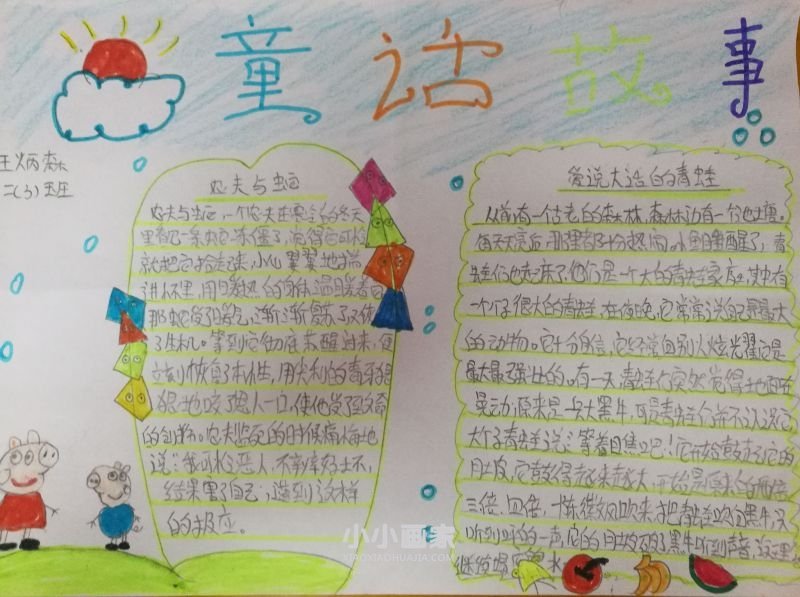 童话故事
王炳森
二(3)班
农夫与蛇
农夫与蛇,一个农夫在寒冷的冬天
里看见一条蛇冻僵了,觉得它可怜
就把它拾起来,小心翼翼地揣
进怀里,用暖热的身体温暖着它
那蛇受了暖气,渐渐复苏了,又恢复
了生机。等到它彻底苏醒过来,便
立刻恢复了本性,用尖利的毒牙狠
狠地咬了恩人一口,使他受了致命
的创伤。农夫临死的时候痛悔地
说:我可怜恶人,不辨好坏,
结果害了自己,遭到这样
的报应。
爱说大话的青蛙
从前有一个古老的森林,森林边有一个池塘。
每天天亮后,那里都十分热闹,小鱼睡醒了,青
蛙们也起床了,他们是一个大的青蛙家庭,其中有
一个很大的青蛙,在夜晚,它常常说自己是最大
的动物。它十分自信,它经常向别人炫耀自己是
最大最强壮的。有一天,青蛙们突然觉得地面在
晃动,原来是一头大黑牛,可是青蛙们并不认识它
大个子青蛙说:等着瞧吧!它开始鼓起它的
肚皮,它鼓得越来越大,开始是原来的两倍
三倍、四倍,一阵微风吹来把青蛙吹向黑牛,只
听到呼的一声,它的肚皮破了黑牛听到声音,没理
继续喝水
小小画家
XIAOXIAOHUAJIA.COM